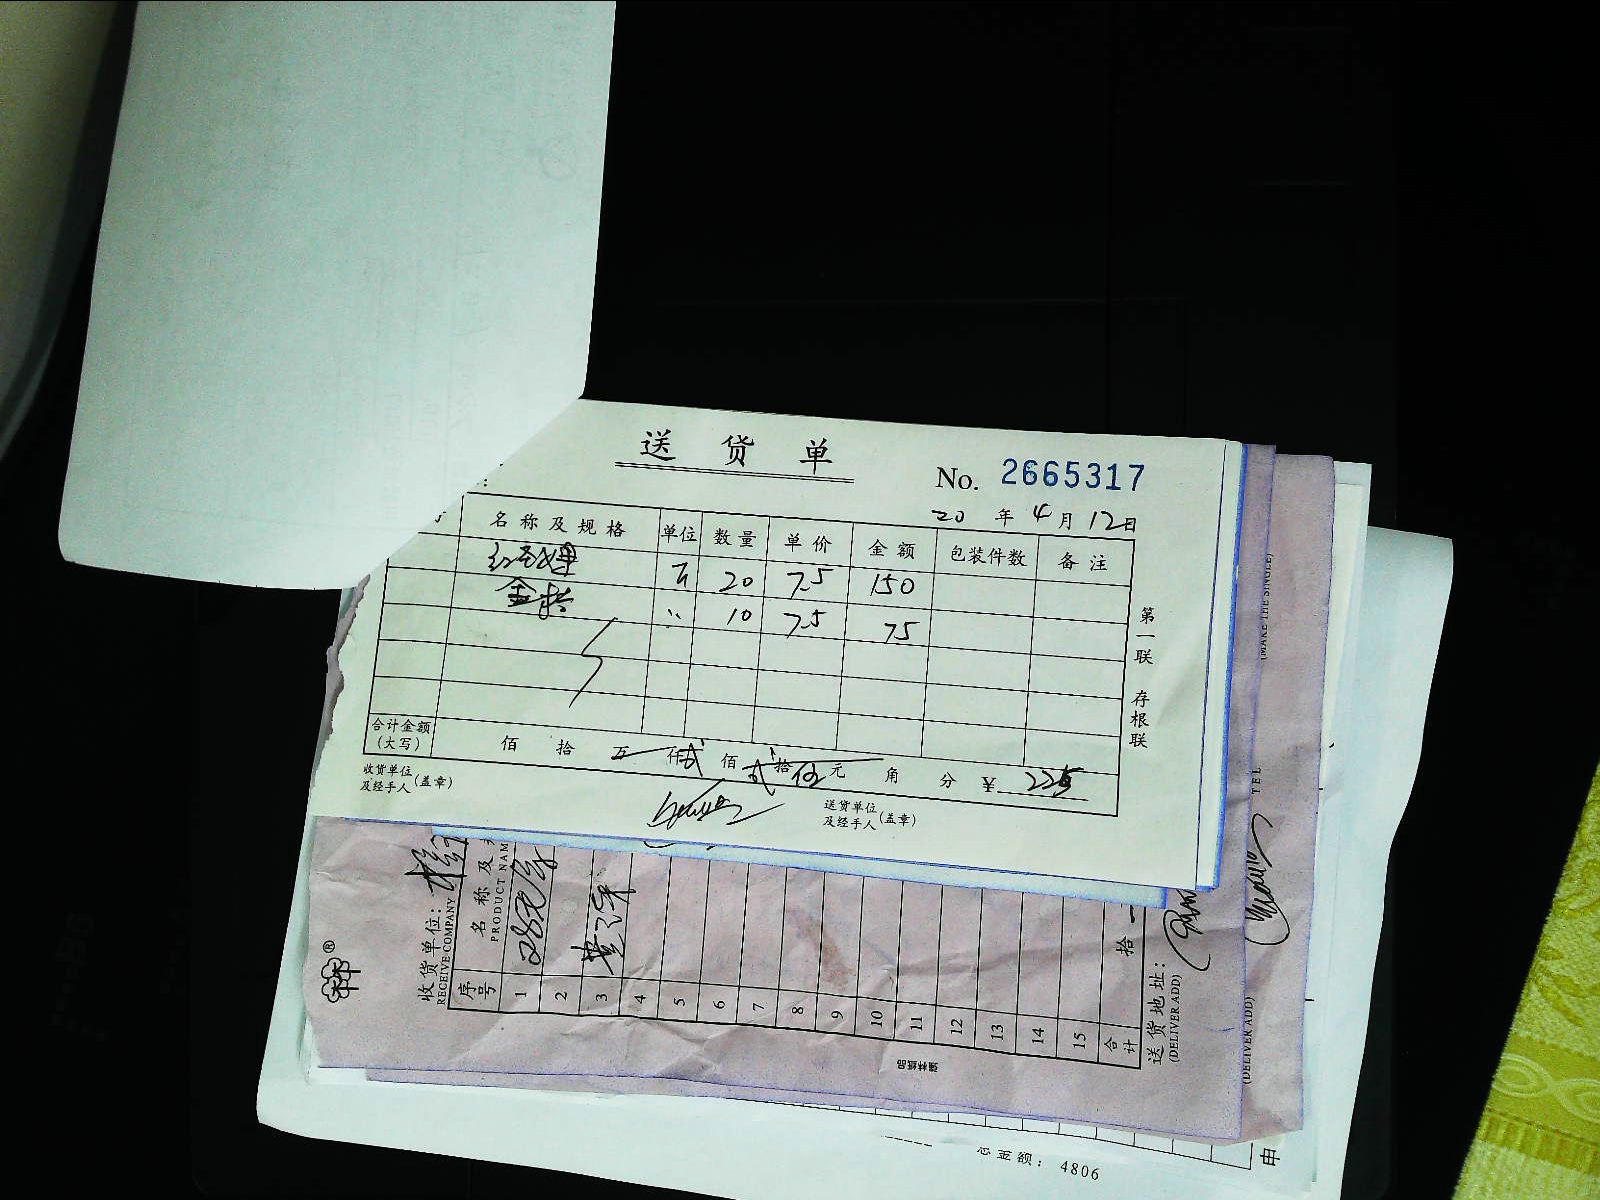 送货单
No. 2665317
20 年 4 月 12 日
名称及规格 单位 数量 单价 金额 包装件数 备注
20 7.5 150
10 7.5 75
合计金额(大写) 佰 拾 万 仟 贰 佰 贰 拾 伍 元 角 分 ¥ 225
收货单位及经手人(盖章) 送货单位及经手人(盖章)
第一联 存根联
收货单位:
RECEIVE COMPANY
序号 名称及
PRODUCT NAM
1
2
3
4
5
6
7
8
9
10
11
12
13
14
15
合计 拾
送货地址:
(DELIVER ADD)
(DELIVER ADD)
TEL
(MAKE THE SINGLE)
总金额: 4806
申